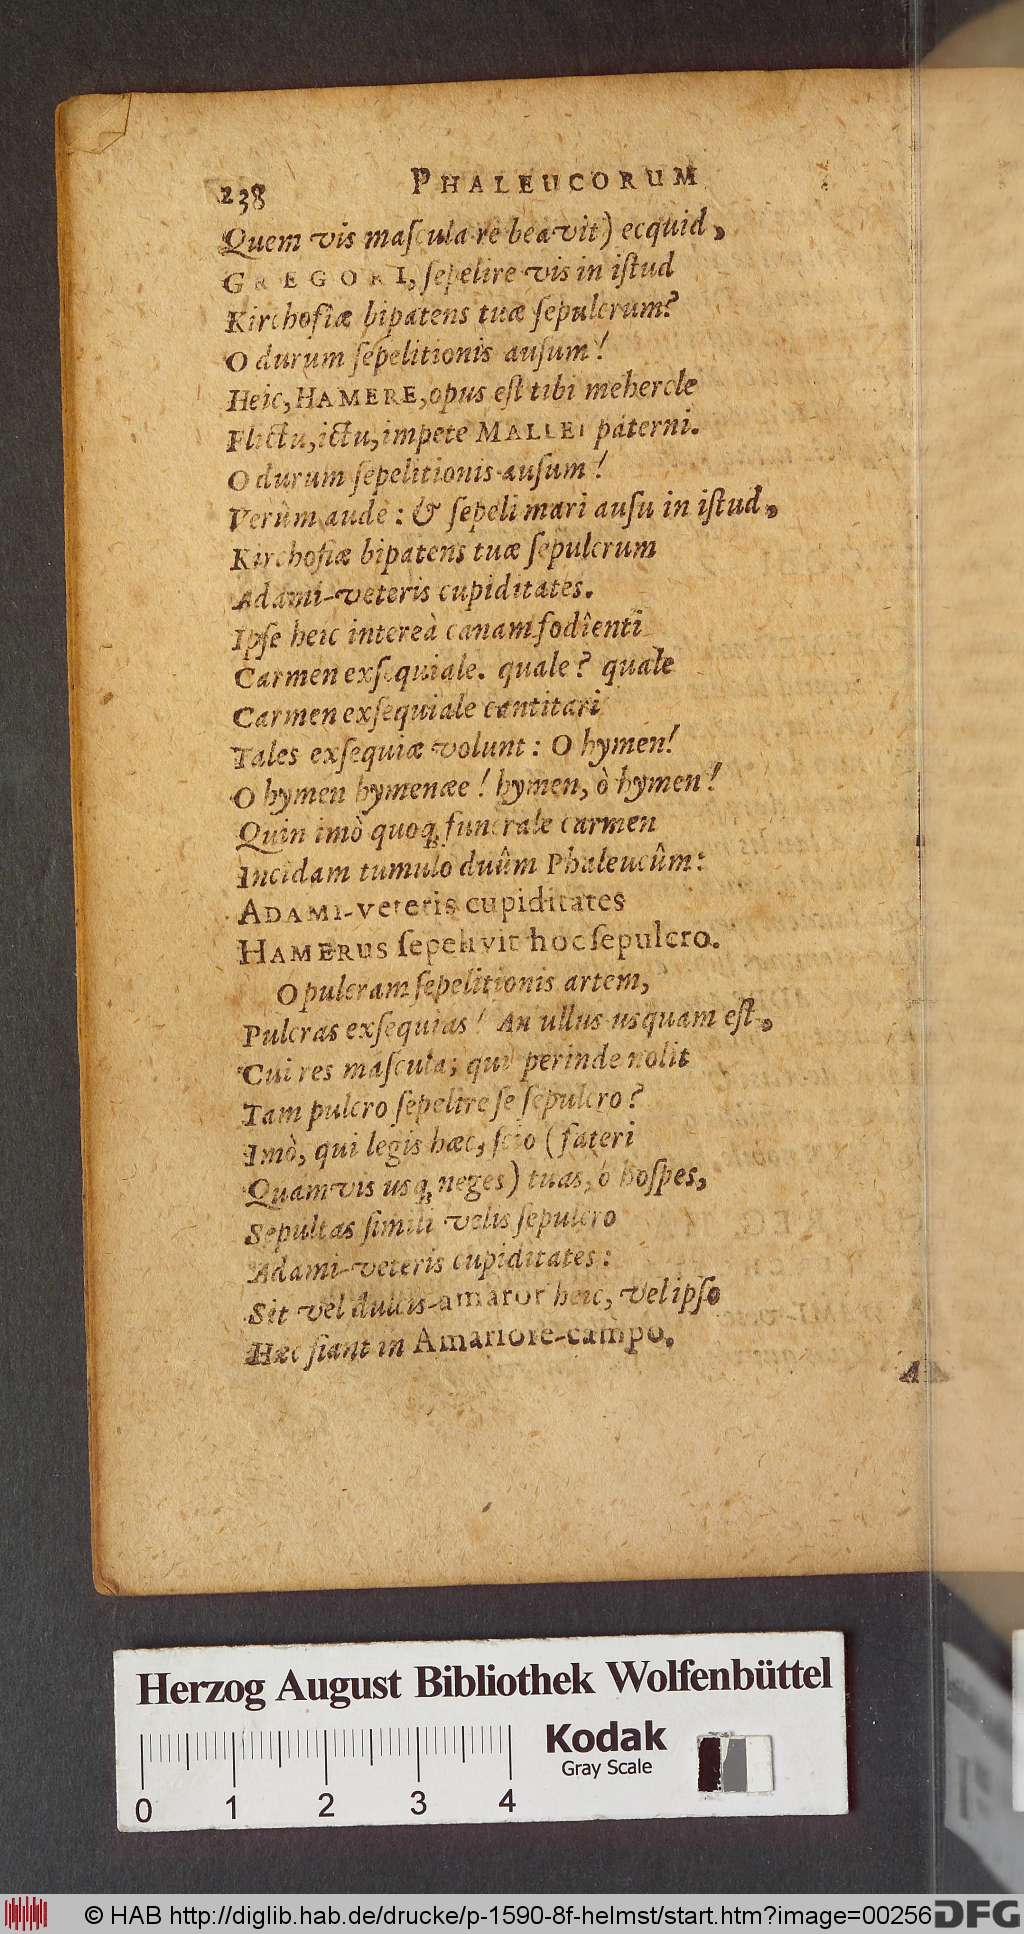 238 PHALEUCORUM
Quem vis maſcula re beavit) ecquid,
GREGORI, ſepelire vis in iſtud
Kirchofiæ bipatens tuæ ſepulcrum?
O durum ſepelitionis auſum!
Heic, HAMERE, opus eſt tibi mehercle
Flictu, ictu, impete MALLEI paterni.
O durum ſepelitionis auſum!
Verùm aude: & ſepeli mari auſu in iſtud,
Kirchofiæ bipatens tuæ ſepulcrum
Adami-veteris cupiditates.
Ipſe heic intereà canam fodîenti
Carmen exſequiale. quale? quale
Carmen exſequiale cantitari
Tales exſequiæ volunt: O hymen!
O hymen hymenæe! hymen, ò hymen!
Quin imò quoq; funerale carmen
Incidam tumulo duûm Phaleucûm:
ADAMI-veteris cupiditates
HAMERUS ſepelivit hoc ſepulcro.
O pulcram ſepelitionis artem,
Pulcras exſequias! An ullus usquam eſt,
Cui res maſcula; qui perinde nolit
Tam pulcro ſepelire ſe ſepulcro?
Imò, qui legis hæc, ſcio (fateri
Quamvis usq; neges) tuas, ò hoſpes,
Sepultas ſimili velis ſepulcro
Adami-veteris cupiditates:
Sit vel dulcis-amaror heic, vel ipſo
Hæc fiant in Amariore-campo.
A
Herzog August Bibliothek Wolfenbüttel
Kodak
Gray Scale
0 1 2 3 4
© HAB http://diglib.hab.de/drucke/p-1590-8f-helmst/start.htm?image=00256
DFG